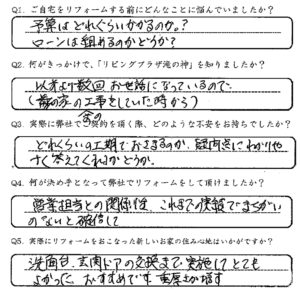 Q1. ご自宅をリフォームする前にどんなことに悩んでいましたか？
予算はどれぐらいかかるのか。？
ローンは組めるのかどうか？
Q2. 何がきっかけで、「リビングプラザ滝の神」を知りましたか？
以前より数回お世話になっているので。
の家の工事をしていた時から）
Q3. 実際に弊社でご契約を頂く際、どのような不安をお持ちでしたか？
どれくらいの工期でおさまるのか、質問等にわかりや
すく答えてくれるかどうか。
Q4. 何が決め手となって弊社でリフォームをして頂けましたか？
営業担当との関係性、これまでの実績でまちがい
のないと確信して
Q5. 実際にリフォームをおこなった新しいお家の住み心地はいかがですか？
洗面台、玄関ドアの交換まで実施して とても
よかった。おすすめです。重厚が増す